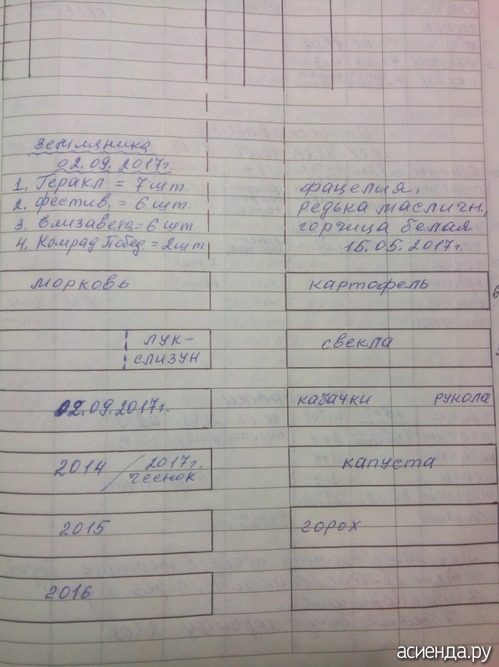 Земляника
02.09.2017г.
1. Геракл = 7 шт.
2. фестив. = 6 шт.
3. Елизавета = 6 шт
4. Комрад Побед. = 2 шт.
фацелия,
редька масличн,
горчица белая
15.05.2017г.
морковь
картофель
лук-
слизун
свекла
02.09.2017г.
кабачки рукола
2014 / 2017г.
чеснок
капуста
2015
горох
2016
асиенда.ру